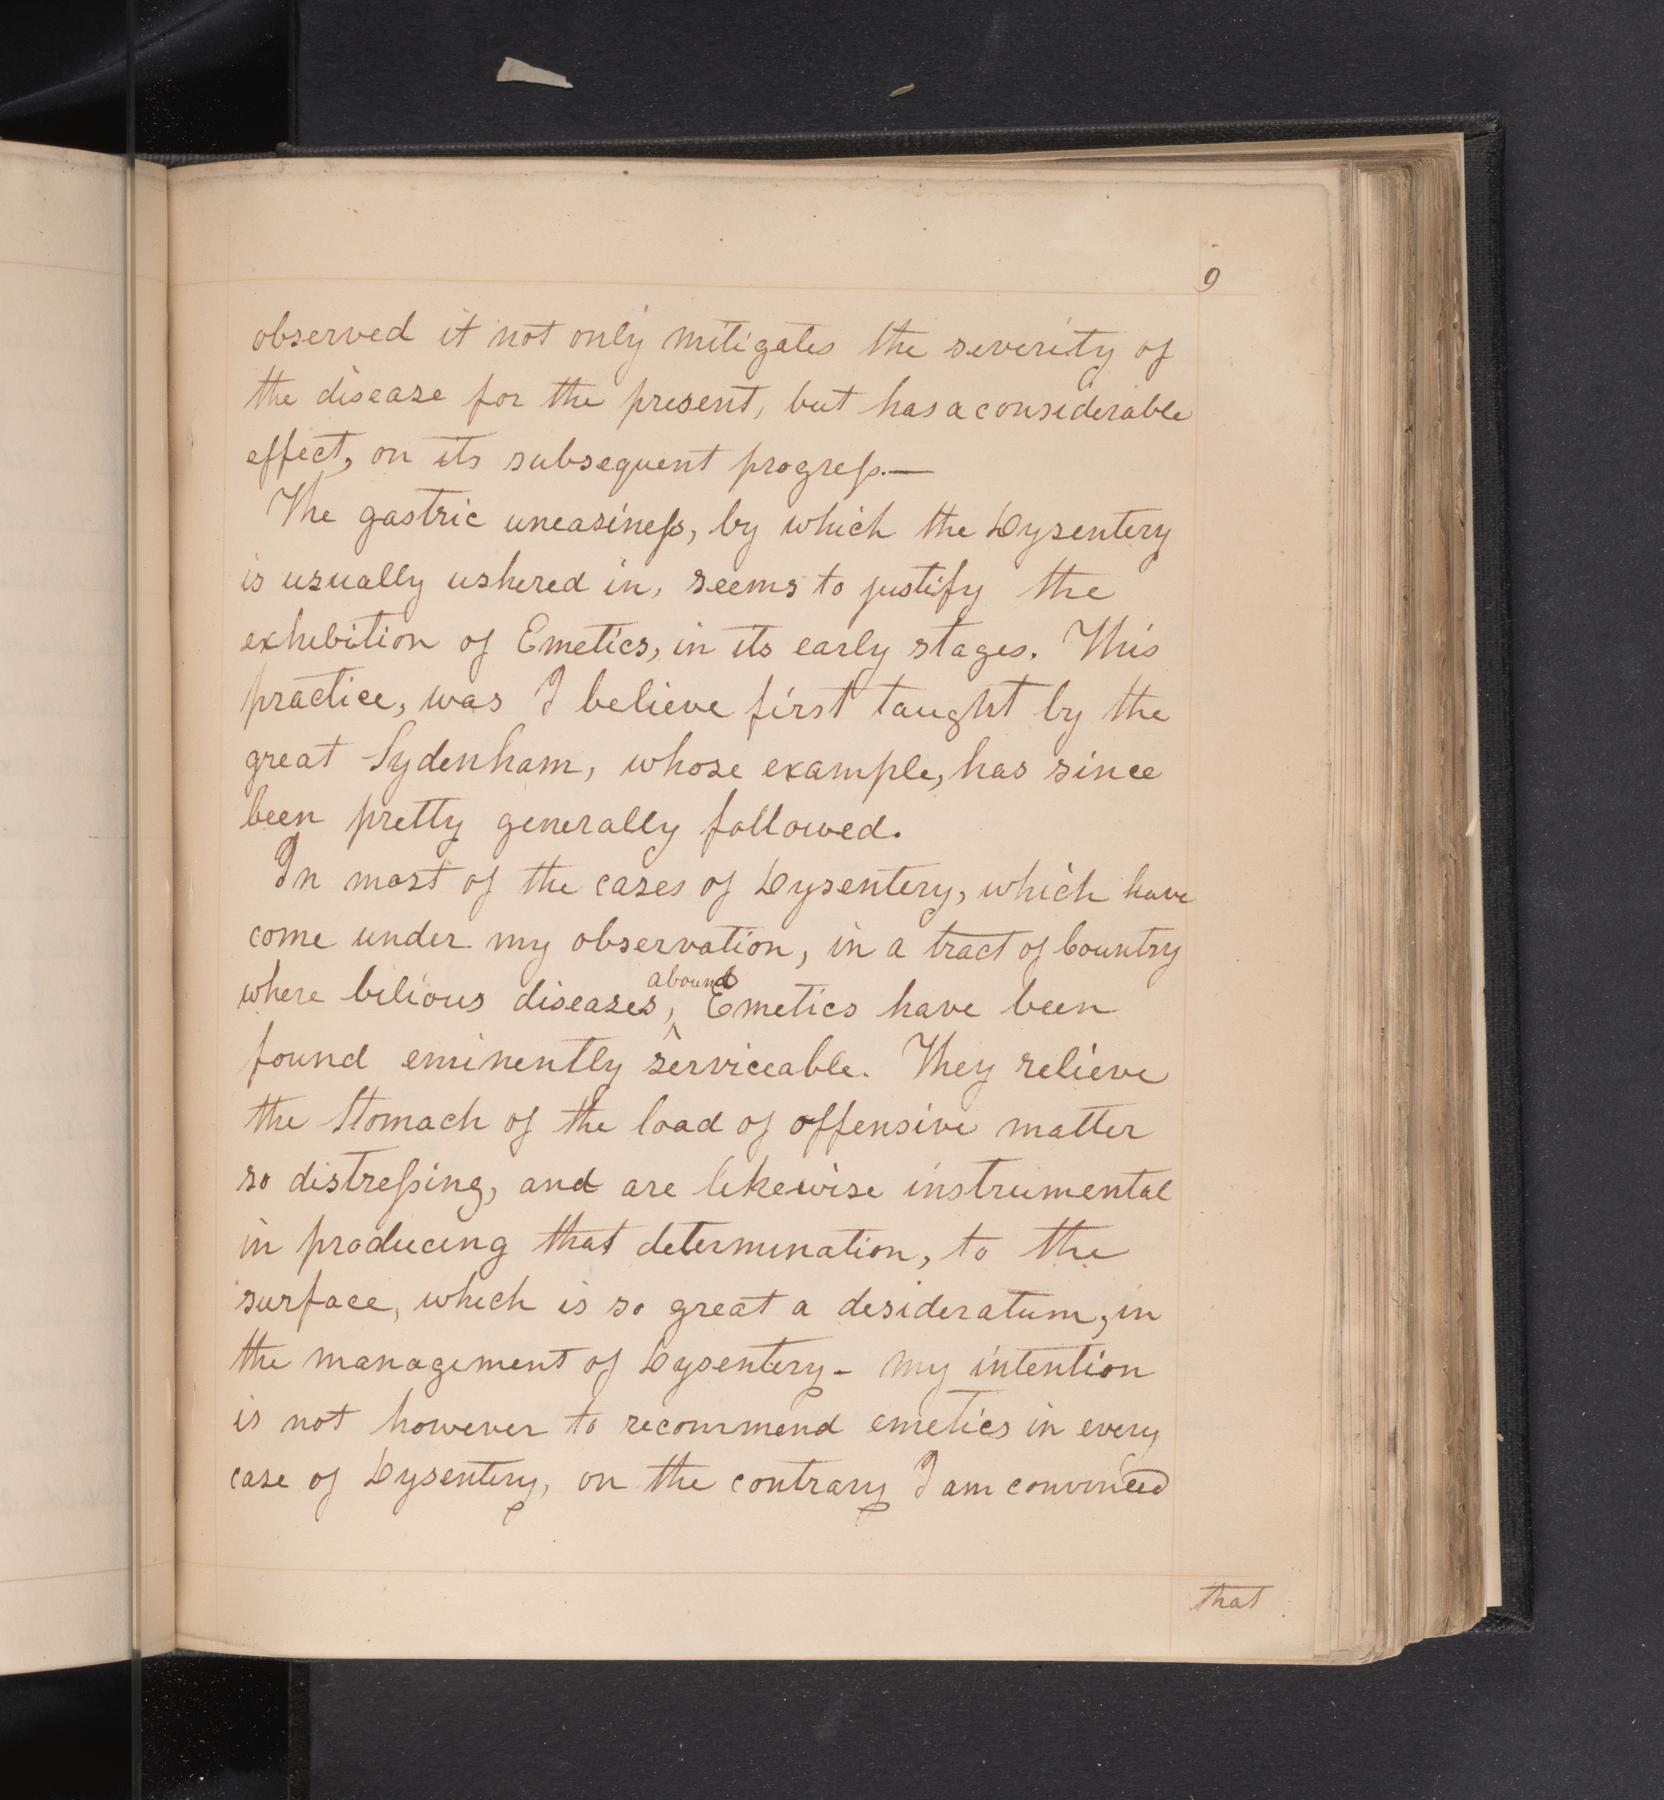 9
observed it not only mitigates the severity of
the disease for the present, but has a considerable
effect, on its subsequent progress.—
The gastric uneasiness, by which the Dysentery
is usually ushered in, seems to justify the
exhibition of Emetics, in its early stages. This
practice, was I believe first taught by the
great Sydenham, whose example, has since
been pretty generally followed.
In most of the cases of Dysentery, which have
come under my observation, in a tract of Country
abound
where bilious diseases, ^ Emetics have been
found eminently serviceable. They relieve
the Stomach of the load of offensive matter
so distressing, and are likewise instrumental
in producing that determination, to the
surface, which is so great a desideratum, in
the management of Dysentery - My intention
is not however to recommend emetics in every
case of Dysentery, on the contrary I am convinced
that